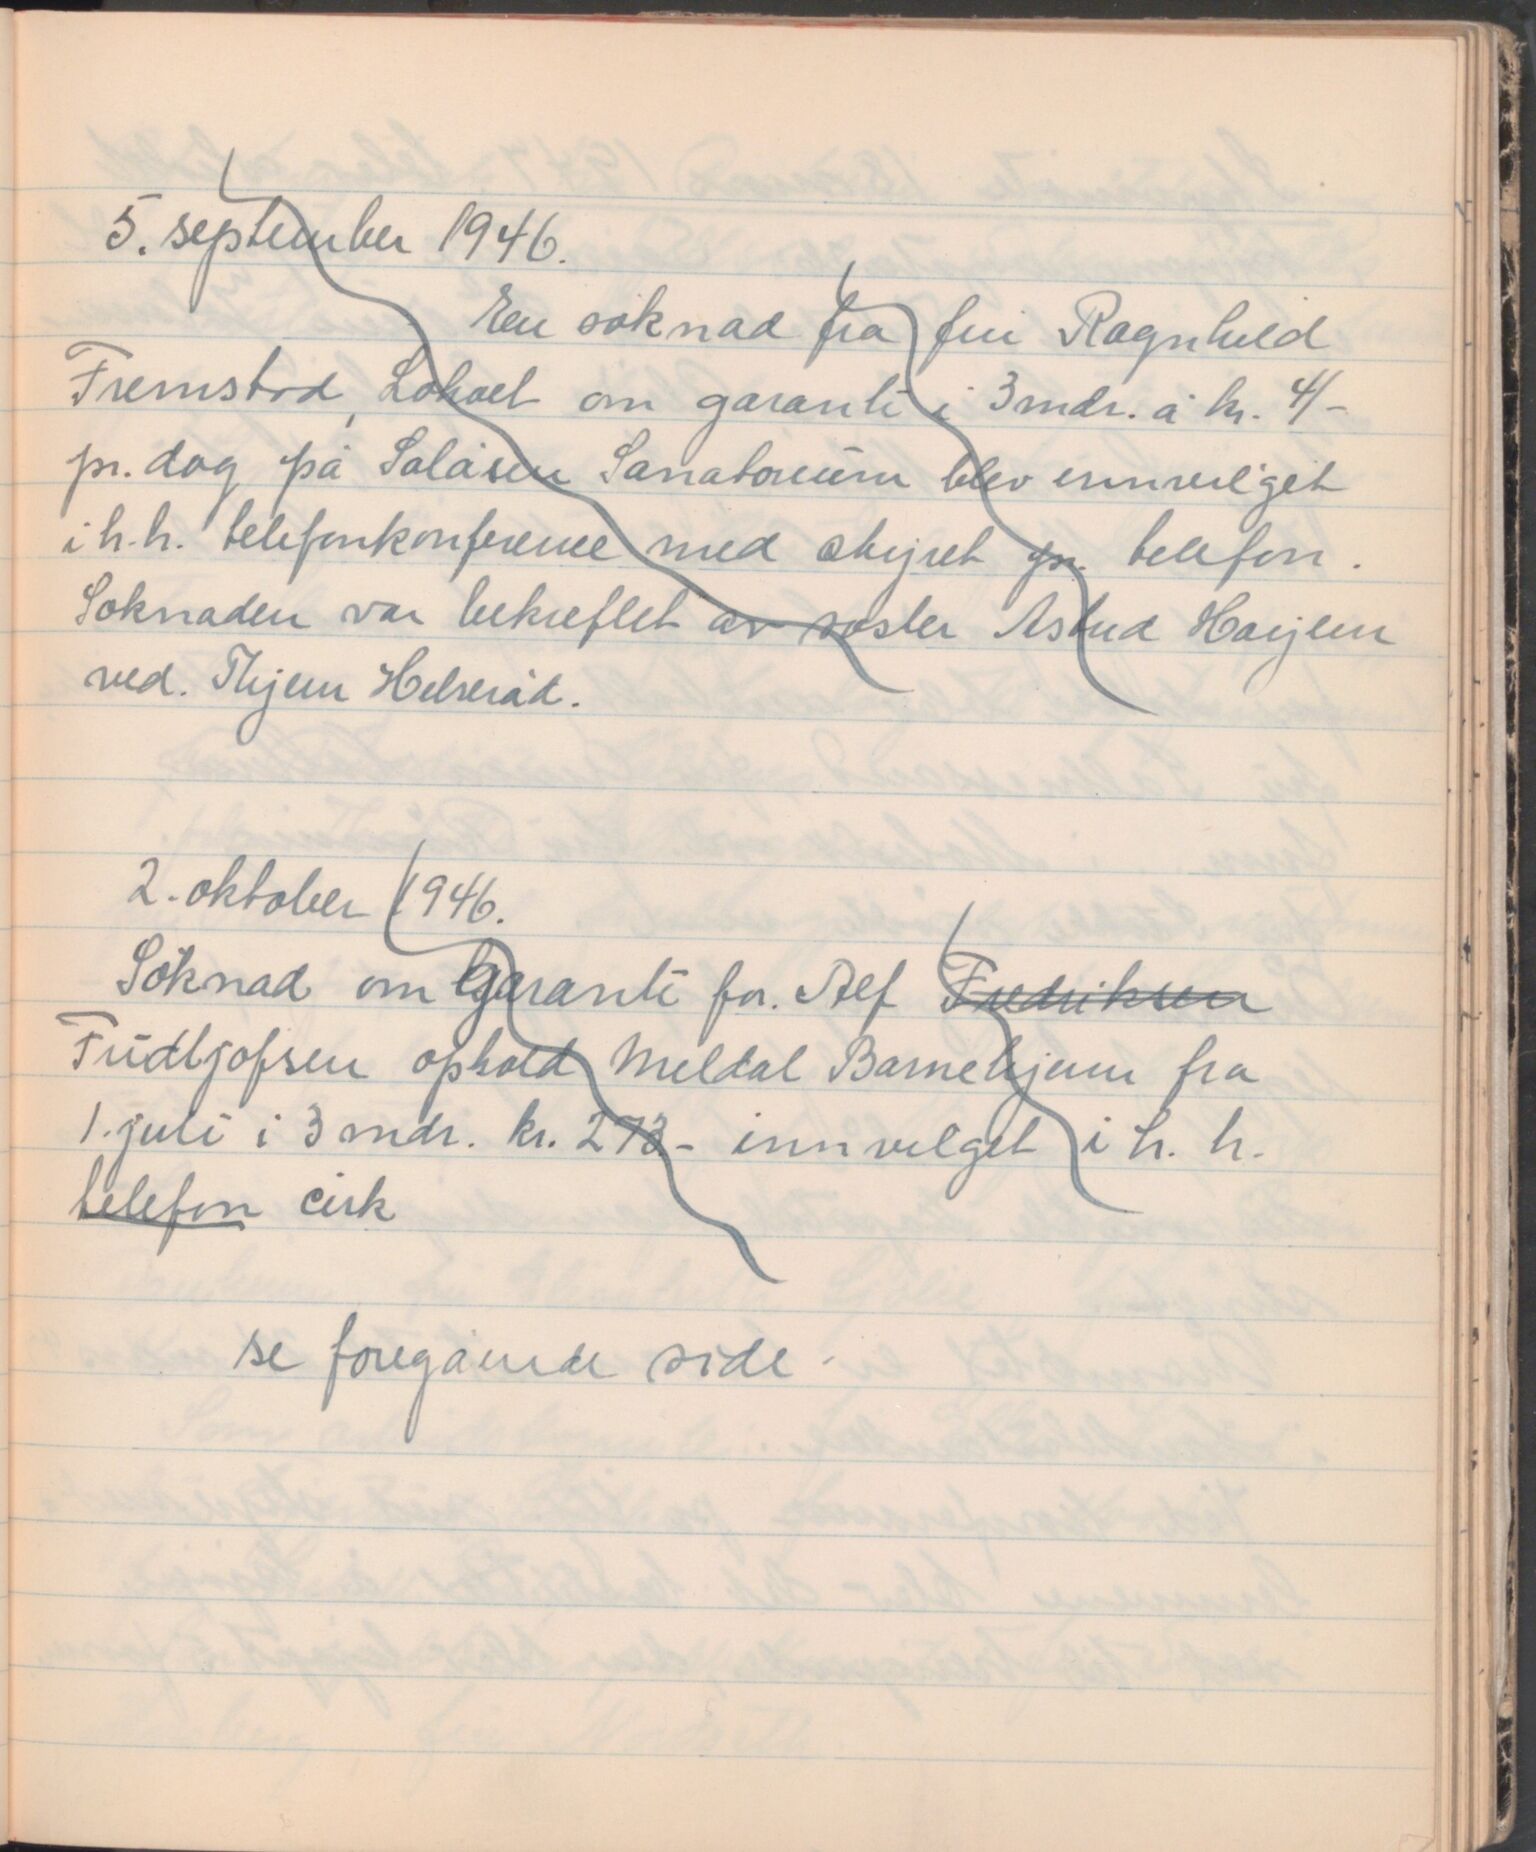 5. september 1946.
En søknad fra fru Ragnhild
Fremstad, Løkvet om garanti i 3 mdr. à kr. 4/-
pr. dag på Solåsen Sanatorium blev innvilget
i h.h. telefonkonference med styret pr. telefon.
Søknaden var bekreftet av søster Astrid Haugen
ved. Tlhjem Helseråd.
2. oktober 1946.
Søknad om Garanti for. Alf Fredriksen
Fridtjofsen ophold Meldal Barnehjem fra
1. juli i 3 mdr. kr. 273.- innvilget i h. h.
telefon cirk
se foregående side.